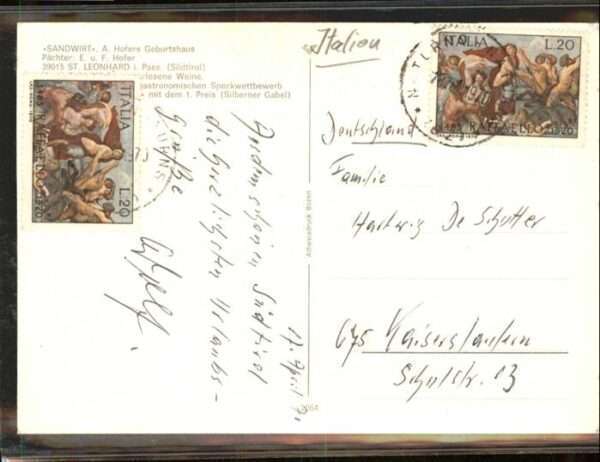 »SANDWIRT«, A. Hofers Geburtshaus
Pächter: E. u. F. Hofer
39015 ST. LEONHARD i. Pass. (Südtirol)
erlesene Weine.
gastronomischen Sportwettbewerb
mit dem 1. Preis (Silberner Gabel)
ITALIA
L.20
ITALIA L.20
RAFFAELLO 1520
Italien
17. April
Aus dem schönen Südtirol
die herzlichsten Urlaubs-
Grüße
Athesiadruck Bozen
Deutschland
Familie
Hartwig De Schutter
675 Kaiserslautern
Schulstr. 13